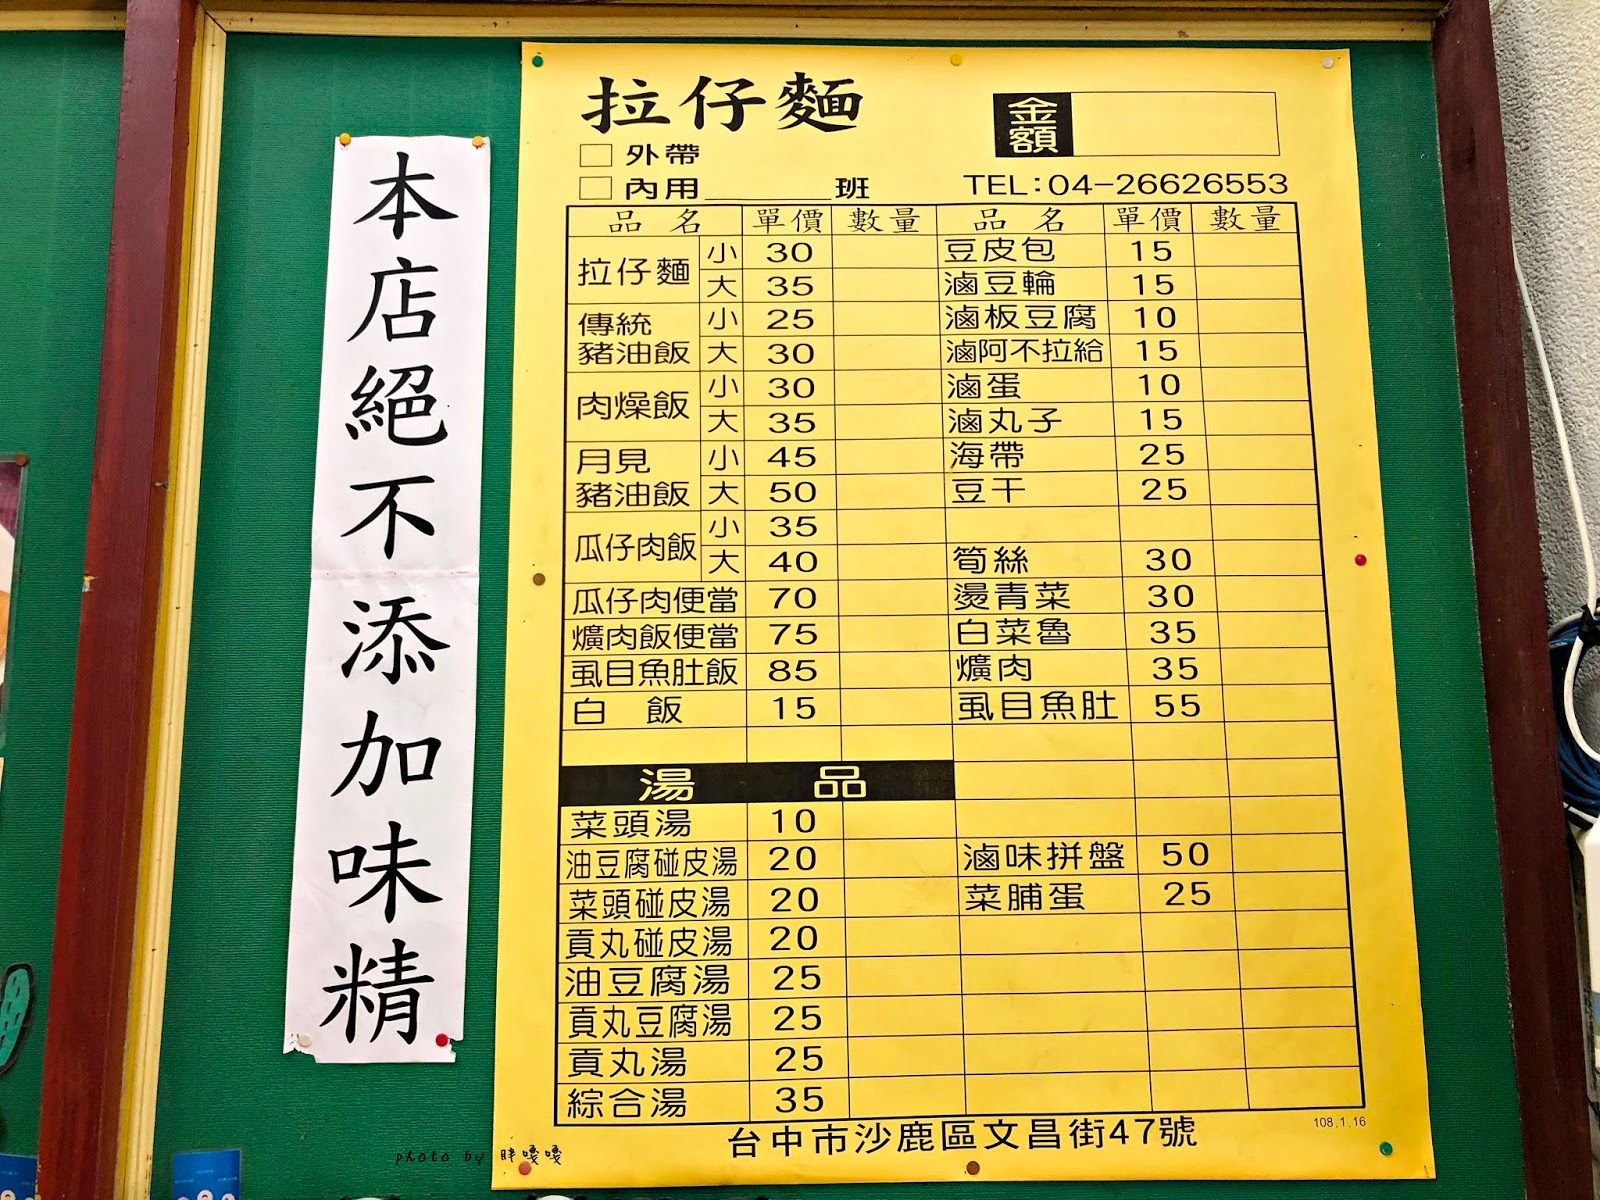 本店絕不添加味精
拉仔麵
金額
外帶
內用 班
TEL:04-26626553
品名 單價 數量 品名 單價 數量
拉仔麵 小 30
大 35
傳統豬油飯 小 25
大 30
肉燥飯 小 30
大 35
月見豬油飯 小 45
大 50
瓜仔肉飯 小 35
大 40
瓜仔肉便當 70
爌肉飯便當 75
虱目魚肚飯 85
白飯 15
湯品
菜頭湯 10
油豆腐碰皮湯 20
菜頭碰皮湯 20
貢丸碰皮湯 20
油豆腐湯 25
貢丸豆腐湯 25
貢丸湯 25
綜合湯 35
豆皮包 15
滷豆輪 15
滷板豆腐 10
滷阿不拉給 15
滷蛋 10
滷丸子 15
海帶 25
豆干 25
筍絲 30
燙青菜 30
白菜魯 35
爌肉 35
虱目魚肚 55
滷味拼盤 50
菜脯蛋 25
108.1.16
台中市沙鹿區文昌街47號
photo by 胖嘎嘎